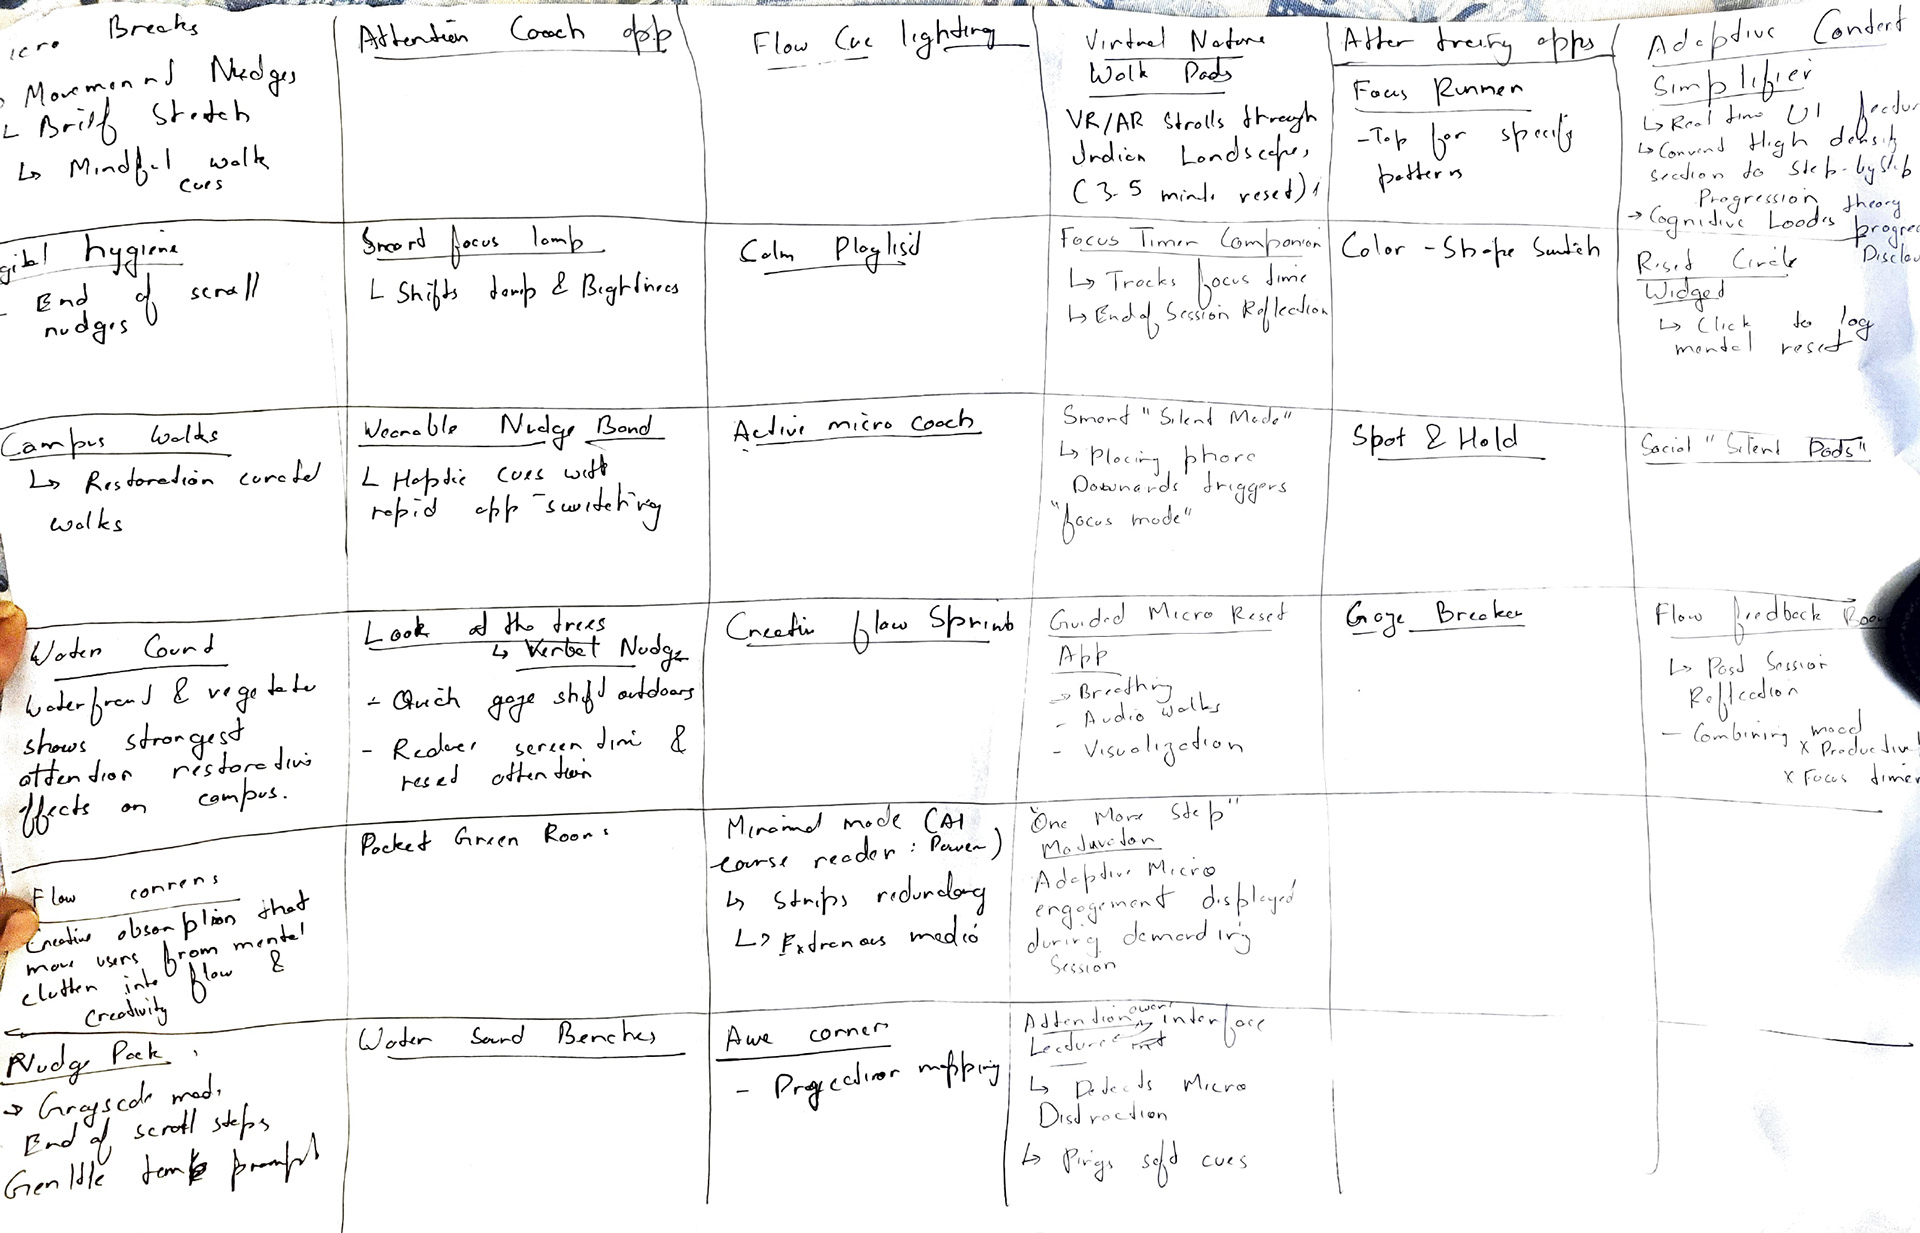 Micro Breaks
Movement Nudges
Brief Stretch
Mindful walk
cues
Attention Coach app
Flow Cue lighting
Virtual Nature
Walk Pads
VR/AR Strolls through
Indian Landscapes,
(3-5 minute reset)
Focus Runner
- Tap for specific
patterns
Adaptive Content
Simplifier
↳ Real time UI
↳ Convert High density
section to Step-by step
Progression theory
→ Cognitive Loads
hygiene
- End of scroll
nudges
Smart focus lamp
↳ Shifts temp & Brightness
Calm Playlist
Focus Timer Companion
↳ Tracks focus time
↳ End of Session Reflection
Color - Shape Switch
Reset Circle
Widget
↳ Click to log
mental reset
Campus Walks
↳ Restoration curated
walks
Wearable Nudge Band
↳ Haptic cues with
rapid app-switching
Active micro coach
Smart "Silent Mode"
↳ placing phone
Downwards triggers
"focus mode"
Spot & Hold
Social "Silent Pods"
Water Court
Waterfront & vegetate
shows strongest
attention restorative
effects on campus.
Look at the trees
↳ Verbal Nudge
- Quick gaze shift outdoors
- Reduce screen time &
reset attention
Creative flow Sprints
Guided Micro Reset
App
→ Breathing
- Audio walks
- Visualization
Gaze Breaker
Flow feedback
↳ Post Session
Reflection
- Combining mood
x Productivi
x Focus timer
Flow corners
Creative absorption that
move users from mental
clutter into flow &
Creativity
Pocket Green Rooms
Minimal mode (AI
course reader: )
↳ Strips redundancy
↳ Extraneous media
"One More Step"
Adaptive Micro
engagement displayed
during demanding
Session
Nudge Pack
→ Grayscale mode,
End of scroll steps
Gentle prompts
Water Sound Benches
Awe corner
- Projection mapping
Attention aware interface
Lecture
↳ Detects Micro
Distraction
↳ Pings soft cues